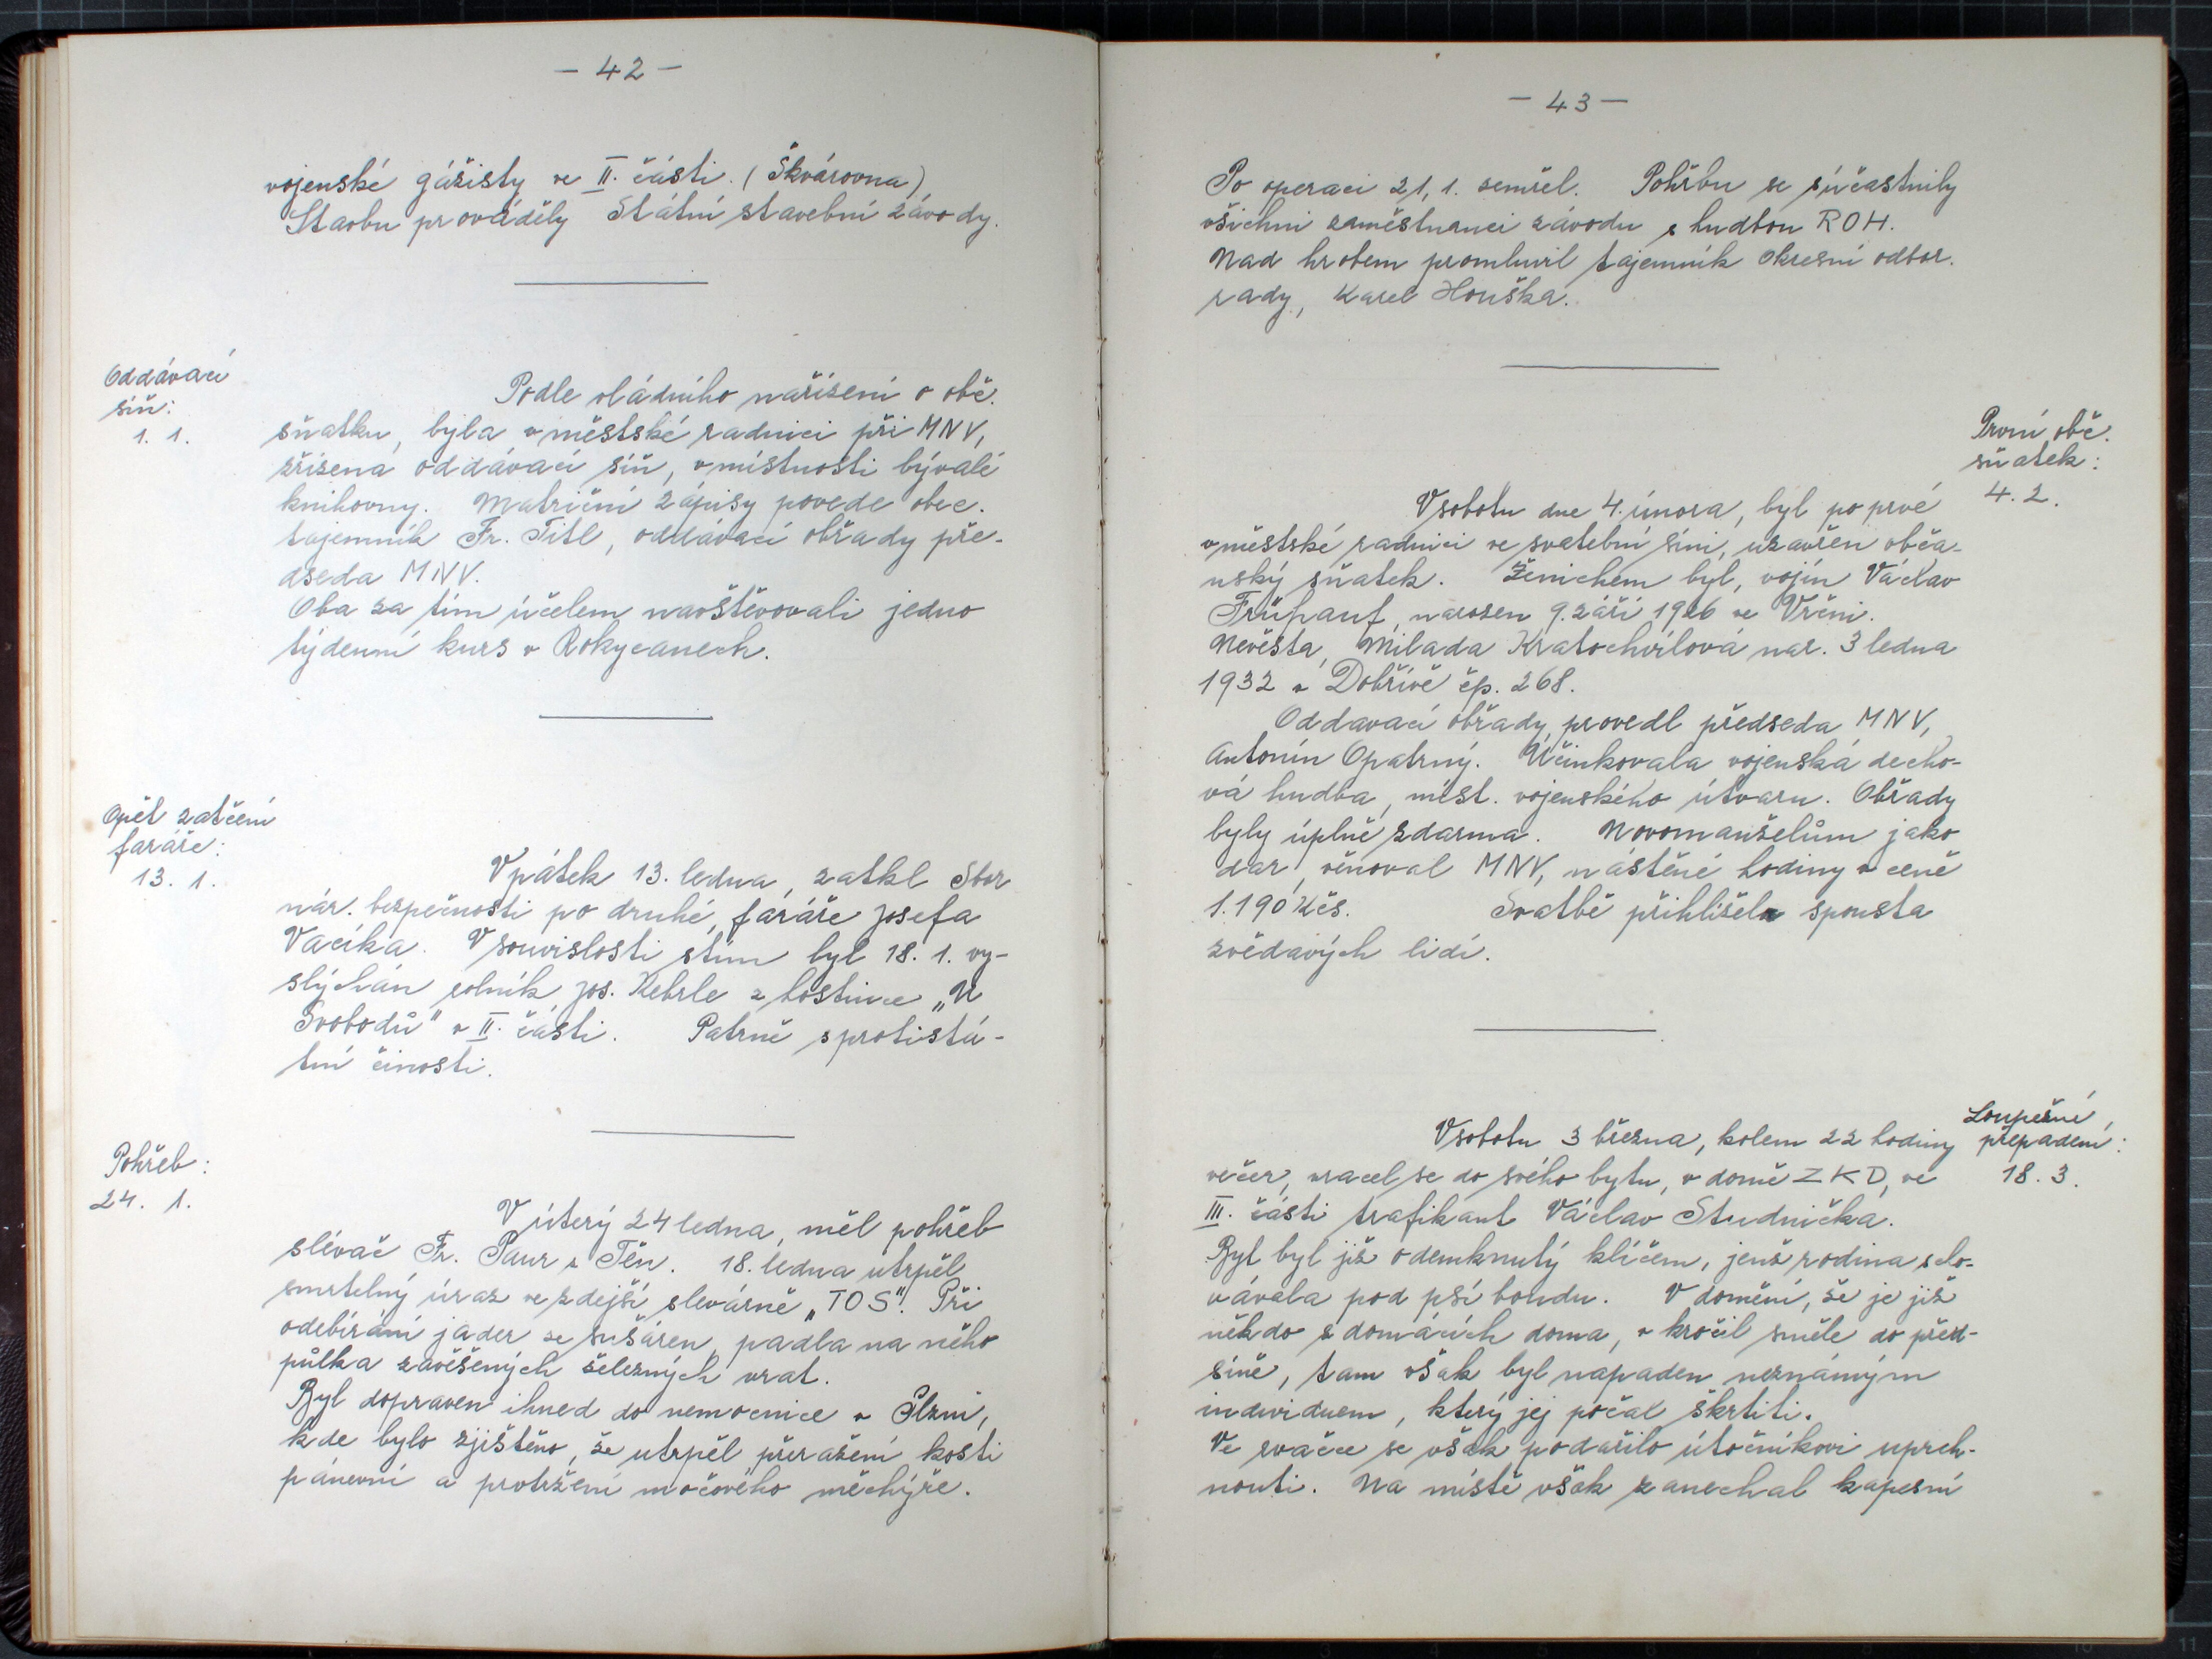 — 42 —
vojenské gážisty ve II. části. (Škvárovna),
Stavbu prováděly Státní stavební závody.
Oddávací
síň:
1. 1.
Podle vládního nařízení o obč.
sňatku, byla v městské radnici při MNV,
zřízená oddávací síň, v místnosti bývalé
knihovny. Matriční zápisy povede obec.
tajemník Fr. Titl, oddávací obřady pře-
dseda MNV.
Oba za tím účelem navštěvovali jedno
týdenní kurs v Rokycanech.
Opět zatčení
faráře:
13. 1.
V pátek 13. ledna, zatkl Sbor
nár. bezpečnosti po druhé, faráře Josefa
Vacíka. V souvislosti stím byl 18. 1. vy-
slýchán rolník Jos. Kebrle z hostince „U
Svobodů" v II. části. Patrně s protistá-
tní činosti.
Pohřeb:
24. 1.
V úterý 24 ledna, měl pohřeb
slévač Fr. Paur z Těn. 18. ledna utrpěl
smrtelný úraz ve zdejší slevárně „TOS". Při
odebírání jader ze sušáren, padla na něho
půlka zavěšených železných vrat.
Byl dopraven ihned do nemocnice v Plzni,
kde bylo zjištěno, že utrpěl přeražení kosti
pánevní a protržení močového měchýře.
— 43 —
Po operaci 21, 1. zemřel. Pohřbu se súčastnily
všichni zaměstnanci závodu s hudbou ROH.
Nad hrobem promluvil tajemník Okresní odbor.
rady, Karel Houška.
První obč.
sňatek:
4. 2.
V sobotu dne 4. února, byl po prvé
v městské radnici ve svatební síni, uzavřen obča-
nský sňatek. Ženichem byl, vojín Václav
Frűhauf, narozen 9. září 1926 ve Vrčni.
Nevěsta, Milada Kratochvílová nar. 3 ledna
1932 v Dobřívě čp. 268.
Oddavací obřady, provedl předseda MNV,
Antonín Opatrný. Účinkovala vojenská decho-
vá hudba, míst. vojenského útvaru. Obřady
byly úplně zdarma. Novomanželům jako
dar, věnoval MNV, nástěné hodiny v ceně
1.190 Kčs. Svatbě přihlížela spousta
zvědavých lidí.
Loupežné
přepadení:
18. 3.
V sobotu 3 března, kolem 22 hodiny
večer, vracel se do svého bytu, v domě ZKD, ve
III. části trafikant Václav Studnička.
Byt byl již odemknutý klíčem, jenž rodina scho-
vávala pod psí boudu. V domění, že je již
někdo z domácích doma, v kročil směle do před-
síně, tam však byl napaden neznámým
individuem, který jej počal škrtiti.
Ve rvačce se však podařilo útočníkovi uprch-
nouti. Na místě však zanechal kapesní